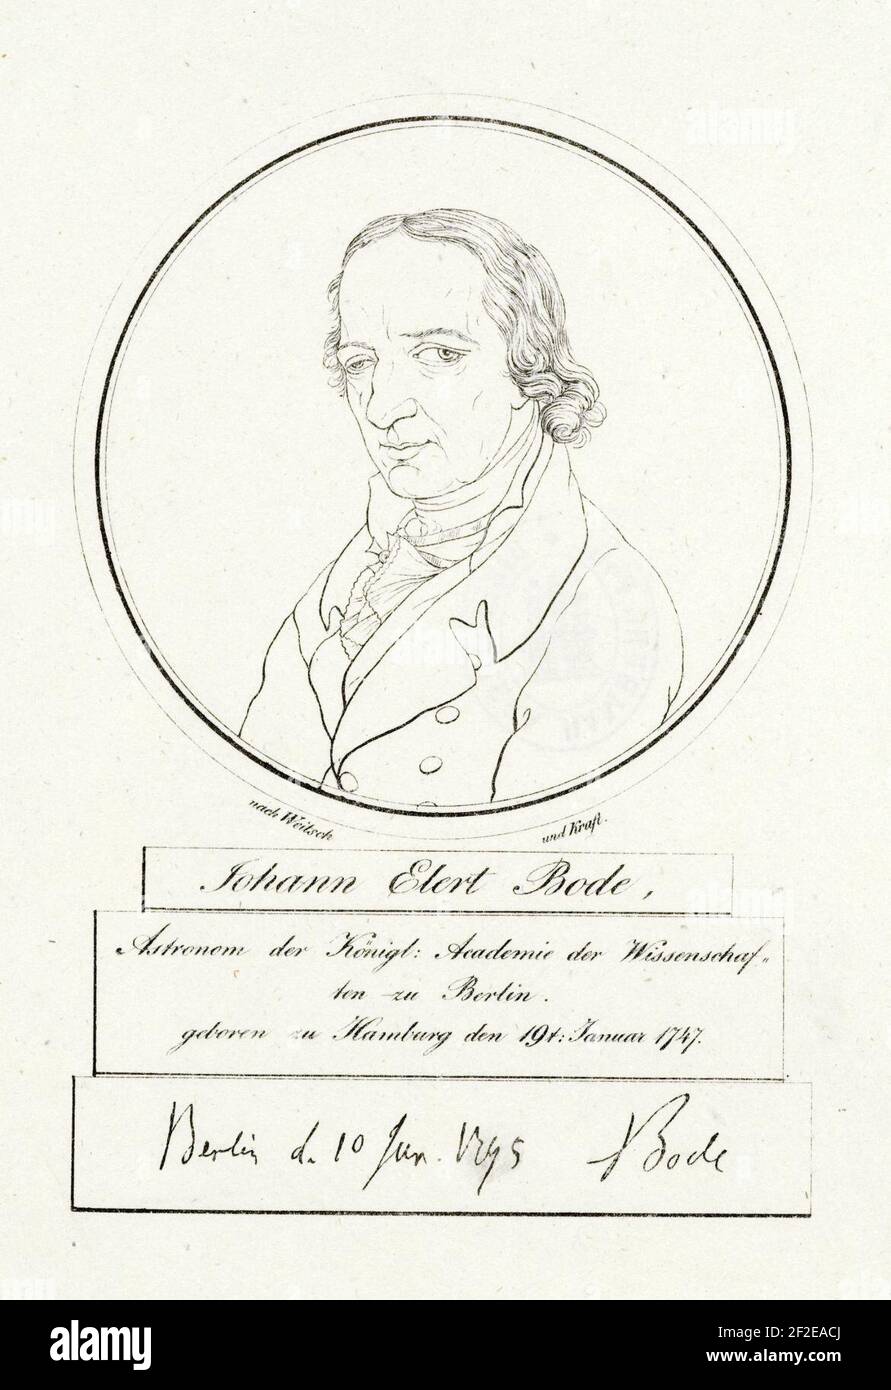 nach Weitsch
und Kraft.
Johann Elert Bode,
Astronom der Königl: Academie der Wissenschaf=
ten zu Berlin.
geboren zu Hamburg den 19t: Januar 1747.
Berlin d. 10 Jun. 1795 Bode
alamy
Image ID: 2F2EACJ
www.alamy.com